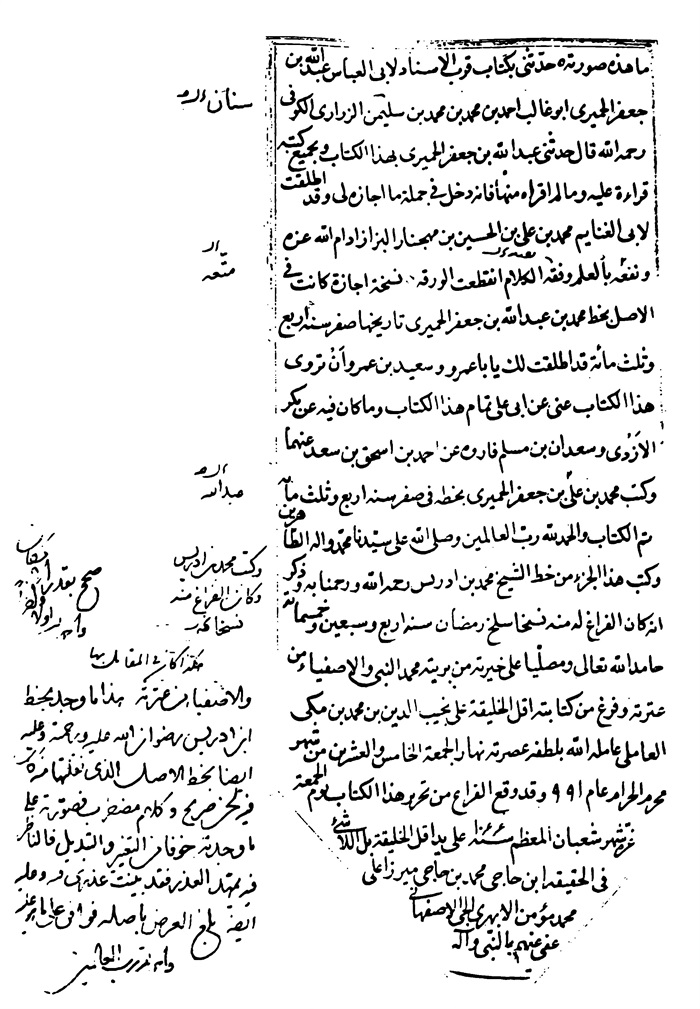 ما هذه صورته حدثنى بكتاب قرب الاسناد لابى العباس عبدالله بن
جعفر الحميرى ابو غالب احمد بن محمد بن محمد بن سليمن الزرارى الكوفى
رحمه الله قال حدثنى عبدالله بن جعفر الحميرى بهذا الكتاب وبجميع كتبه
قراءة عليه وما لم اقراه منها فانه دخل فى جملة ما اجازه لى وقد اطلقت
لابى الغنايم محمد بن على بن الحسين بن مهجنار البزاز ادام الله عزه
ونفعه بالعلم وفقه الكلام انقطعت الورقه نسخة اجازة كانت فى
الاصل بخط محمد بن عبدالله بن جعفر الحميرى تاريخها صفر سنه اربع
وثلث مائة قد اطلقت لك يا با عمرو سعيد بن عمرو أن تروى
هذا الكتاب عنى عن ابى على تمام هذا الكتاب وما كان فيه عن بكر
الازدى وسعدان بن مسلم فاروه عن احمد بن اسحق بن سعد عنهما
وكتب محمد بن على بن جعفر الحميرى بخطه فى صفر سنه اربع وثلث مائه
تم الكتاب والحمد لله رب العالمين وصلى الله على سيدنا محمد واله الطاهرين
وكتب هذا الجزء من خط الشيخ محمد بن ادريس رحمه الله ورحمنا به وذكر
انه كان الفراغ له منه نسخا سلخ رمضان سنه اربع وسبعين وخمسمائة
حامدا لله تعالى ومصليا على خيرته من بريته محمد النبى والاصفياء من
عترته وفرغ من كتابته اقل الخليقة على نجيب الدين بن محمد بن مكى
العاملى عامله الله بلطفه عصرته نهار الجمعة الخامس والعشرين من شهر
محرم الحرام عام ٩٩١ وقد وقع الفراغ من تحرير هذا الكتاب يوم الجمعة
شهر شعبان المعظم على يد اقل الخليقة بل اللاشئ
فى الحقيقه ابن حاجى محمد بن حاجى ميرزا على
محمد مؤمن الابهرى الاصفهانى
عفى عنهم بالنبى وآله
سنان
متعه
عبدالله
وكتب محمد بن ادريس
وكان الفراغ منه
نسخا
هكذا كان فى المقابل بها
والاصفياء من عترته هذا ما وجد بخط
ابن ادريس رضوان الله عليه ورحمته وعليه
ايضا بخط الاصل الذى نقلتها منه كان
فيه لحن صريح وكلام مضطرب فصورته على
ما وجدته خوفا من التغيير والتبديل فالناظر
فيه يمهد العذر فقد بينت عذرى فيه وعليه
ايضا بلغ العرض باصله فوافق
رب العالمين